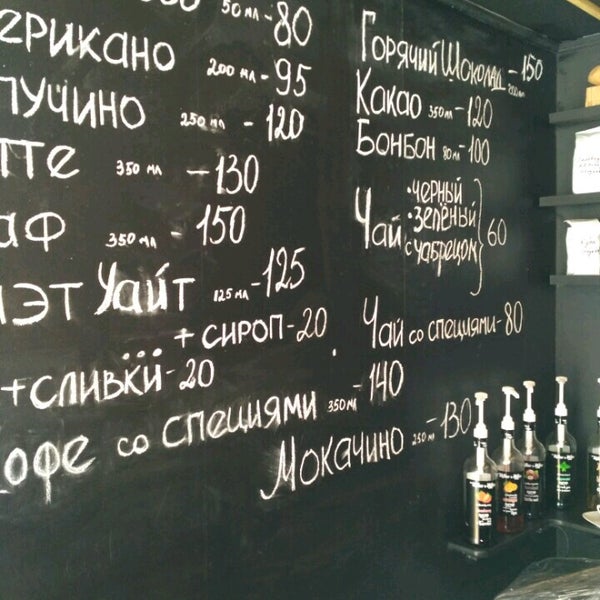 50 мл - 80
ерикано 200 мл - 95
пучино 250 мл - 120
тте 350 мл - 130
аф 350 мл - 150
эт Уайт 125 мл - 125
+ сироп - 20
+ сливки - 20
Кофе со специями 350 мл - 140
Мокачино 250 мл - 130
Горячий Шоколад 200 мл - 150
Какао 350 мл - 120
Бонбон 80 мл - 100
Чай • черный • зелёный с чабрецом } 60
Чай со специями - 80